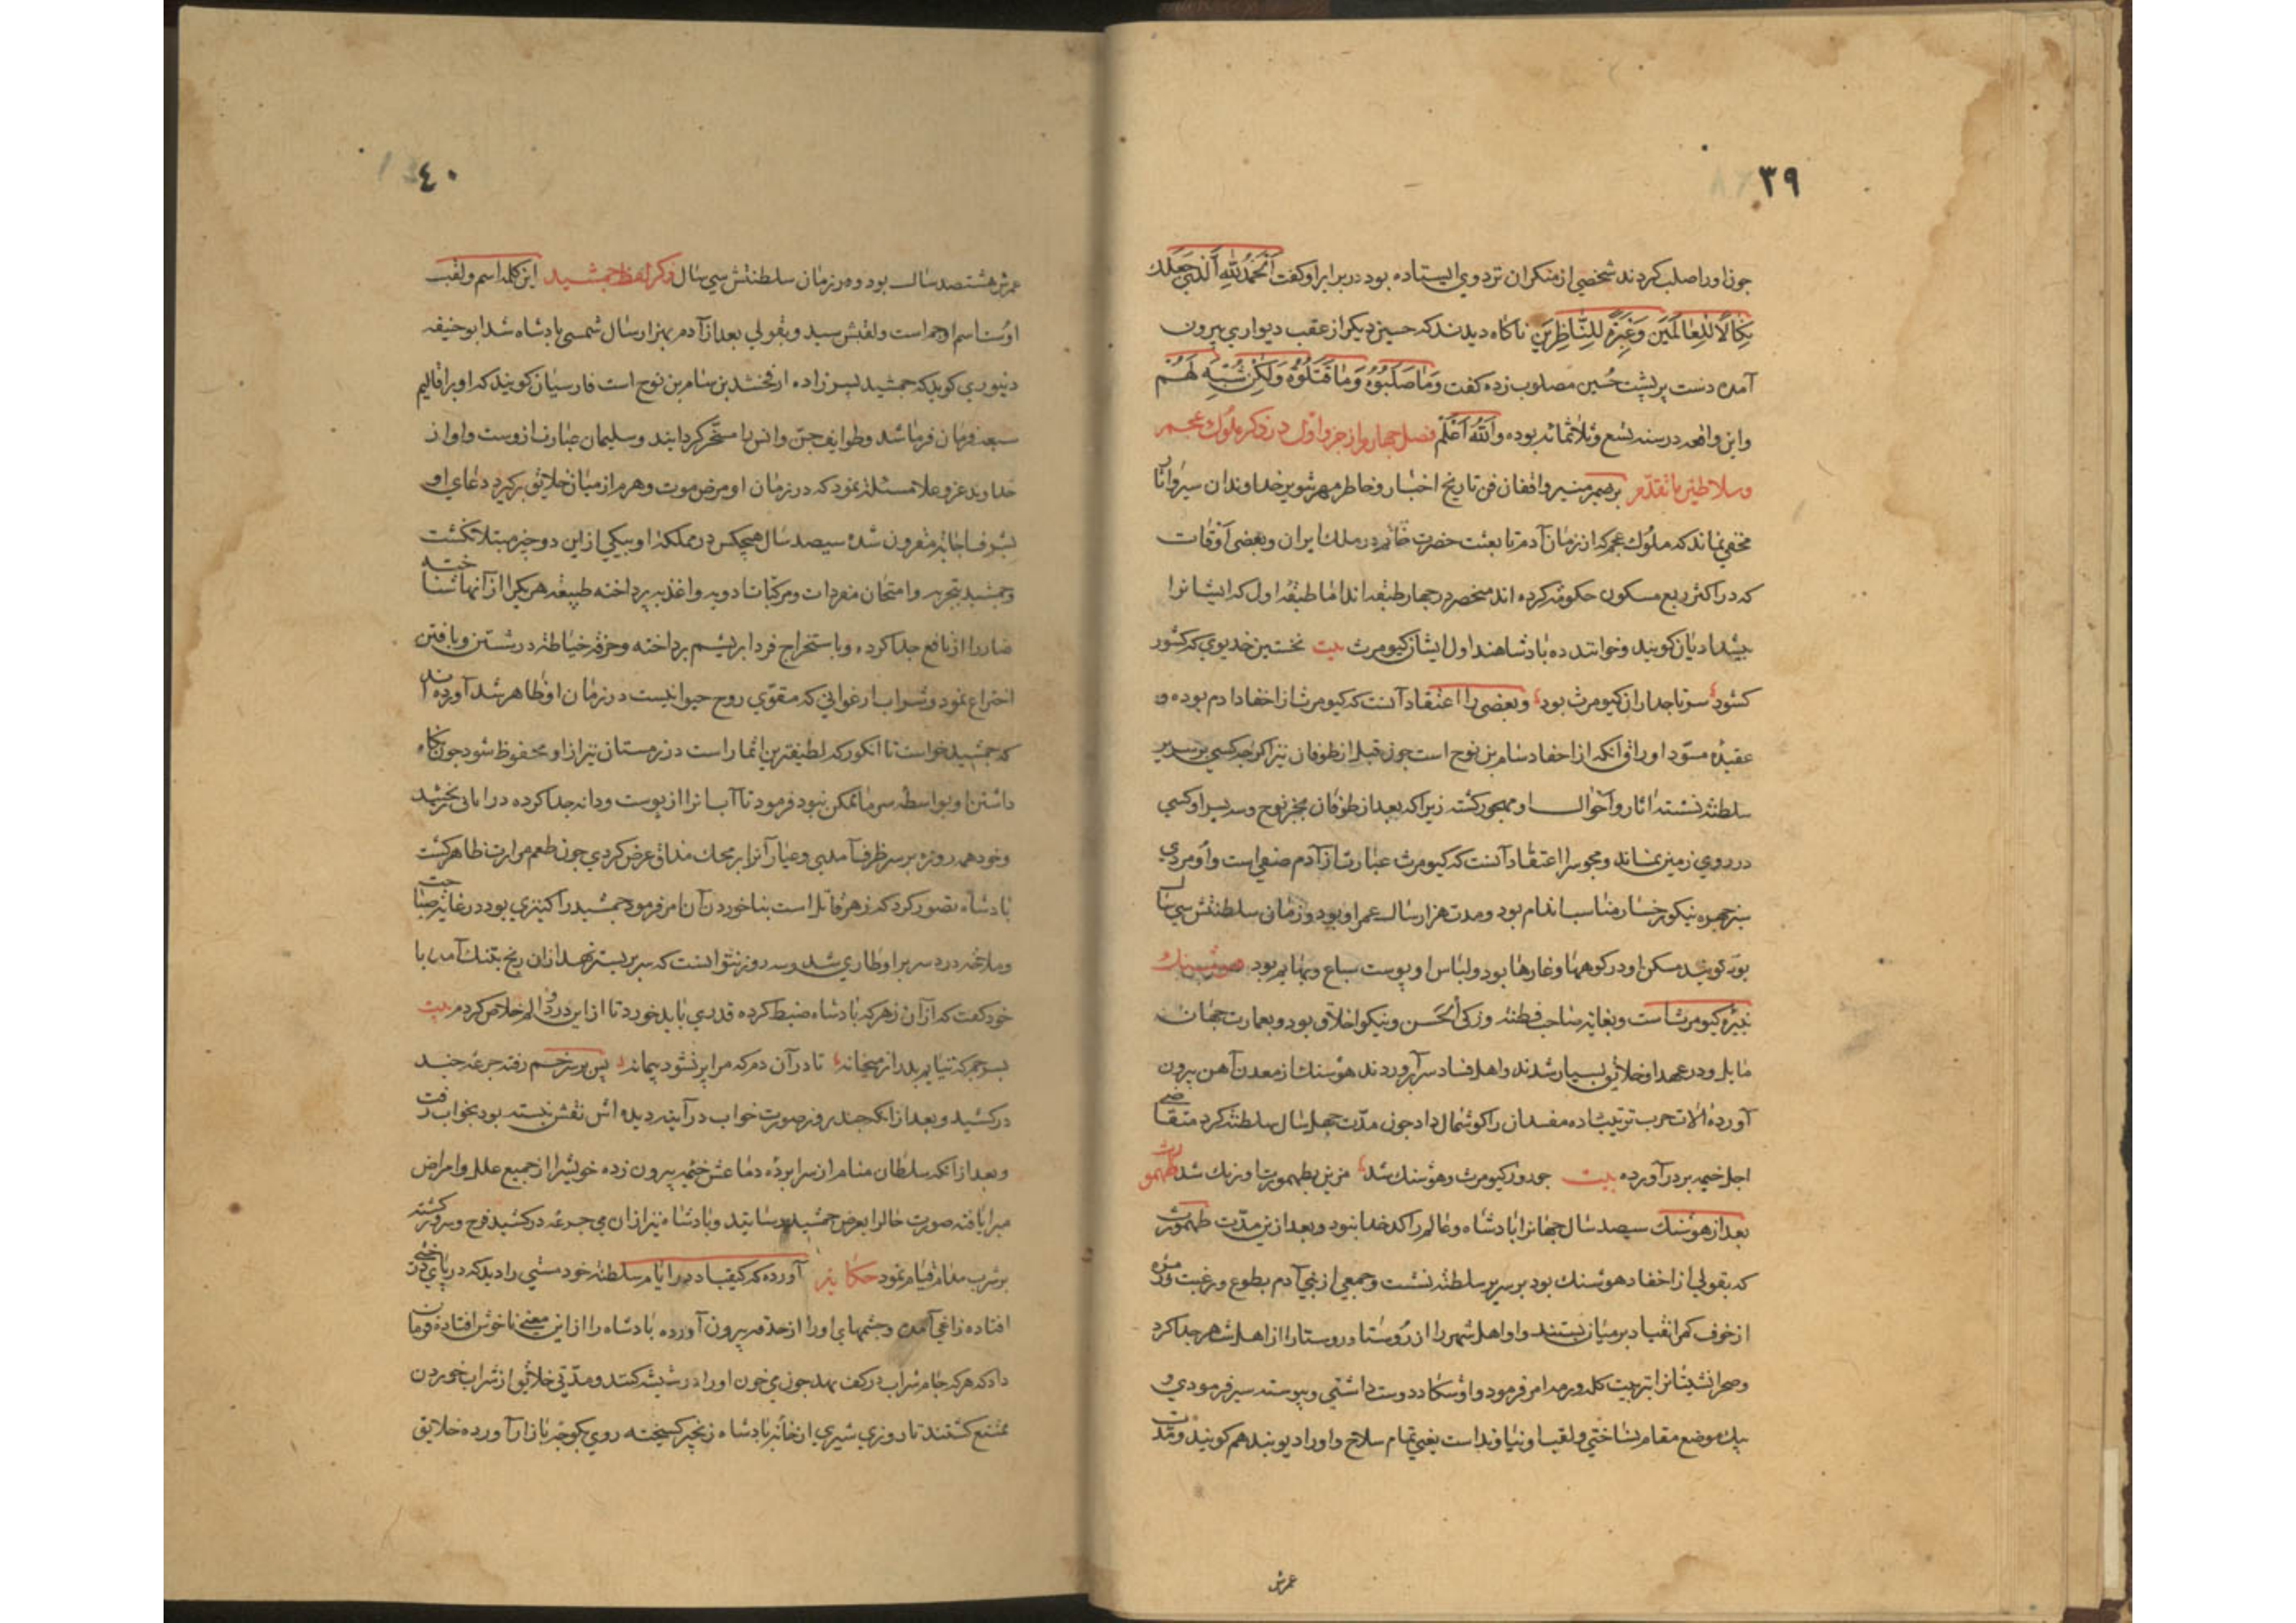 ٣٩
جون اورا صلب کردند شخصی از منکران نزد وی ایستاده بود در برابر او کفت اَلْحَمْدُ لِلّهِ اَلَّذي جَعَلَكَ
نَكَالاً لِلْعالَمينَ وَعِبْرَةً لِلنَّاظِرينَ ناکاه دیدند که حسین دیکر از عقب دیواری بیرون
آمده دست بر پشت حُسین مصلوب زده کفت وَمَا صَلَبُوُهُ وَمَا قَتَلُوُهُ وَلَكِنْ شُبِّهَ لَهُمْ
و این واقعه در سنه تسع و ثلاثمائه بوده وَاللّهُ اَعْلَمُ فصل جهارم از جزو اول در ذکر ملوك عجم
و سلاطین ماتقدّم بر ضمیر منیر واقفان فن تاریخ اخبار و خاطر مهر تنویر خداوندان سیر و اثار
مخفی نماند که ملوك عجم که از زمان آدم تا بعثت حضرت خاتم در ملك ایران و بعضی آوقات
که در اکثر ربع مسکون حکومة کرده اند منحصر در جهار طبقه اند امّا طبقهٔ اول که ایشانرا
بیشدادیان کویند و خوانند ده بادشاهند اول ایشان کیومرث بیت نخستین خدیوی که کشور
کشود سر تاجداران کیومرث بود و بعضی را اعتقاد آنست که کیومرث از احفاد ادم بوده و
عقیدهٔ مسوّد اوراق انکه از احفاد سام بن نوح است جون قبل از طوفان نیز اکر جه کسی بر سریر
سلطنة نشسته اثار و آحوال او مهجور کشته زیرا که بعد از طوفان بجز نوح و سه بسر او کسی
در روی زمین نماند و مجوسرا اعتقاد آنست که کیومرث عبارت از آدم صفی است و او مردی
سبز جهره نیکو رخسار مناسب اندام بود و مدت هزار سال عمر او بود و زمان سلطنتش سی سال
بود کویند مسکن او در کوهها و غارها بود و لباس او پوست سباع و بهایم بود هوشنك
نبیرهٔ کیومرث است و بغایة صاحب فطنة و زکی الحَسن و نیکو اخلاق بود و بعمارت جهان
مایل و در عهد او خلائق بسیار شدند و اهل فساد سر آوردند هوشنك از معدن آهن بیرون
آورده الات حرب ترتیب داده مفسدان را کوشمال داد جون مدّت جهل سال سلطنة کرد متقاضی
اجل خیمه بر در آورده بیت جو دور کیومرث و هوشنك شد مزین بطهمورث اورنك شد طهمورث
بعد از هوشنك سیصد سال جهانرا بادشاه و عالم را کدخدا نبود و بعد ازین مدّت طهمورث
که بقولی از احفاد هوشنك بود بر سریر سلطنة نشست و جمعی از بنی آدم بطوع و رغبت و زمره
از خوف کمر انقیاد بر میان بستند و او اهل شهر را از رُوستا و روستا را از اهل شهر جدا کرد
و صحرا نشینانرا بتربیت کله و رمه امر فرمود و او شکار دوست داشتی و پیوسته سیر فرمودی و
بیك موضع مقام نساختی و لقب او زیناوند است یعنی تمام سلاح و اورا دیوبند هم کویند و مدّت
عمرش
٤٠
عمرش هشتصد سال بوده و زمان سلطنتش سی سال ذکر لفظ جمشید این کله اسم و لقب
اوست اسم او جم است و لقبش سید و بقولی بعد از آدم بهزار سال شمسی بادشاه شد ابو حنیفه
دینوری کوید که جمشید بسر زاده ارفخشد بن سام بن نوح است فارسیان کویند که او بر اقالیم
سبعه فرمان فرما شد و طوایف جن و انس را مسخّر کردانید و سلیمان عبارت ازوست و او از
خداوند عزّ و علا مسئلة نمود که در زمان او مرض موت و هرم از میان خلائق برکیرد دعای او
بشرف اجابة مقرون شده سیصد سال هیجکس در مملکة او بیکی از این دو جیز مبتلا نکشت
و جمشید بتجربه و امتحان مفردات و مرکبات ادویه و اغذیه پرداخته طبیعة هر یکرا از آنها شناخته
ضار را از نافع جدا کرده و باستخراج قز و ابریشم پرداخته و حرفهٔ خیاطة در رشتن و بافتن
اختراع نمود و شراب ارغوانی که مقوّی روح حیوانیست در زمان او ظاهر شد آورده اند
که جمشید خواست تا انکور که لطیفترین اثمار است در زمستان نیز از او محفوظ شود جون نکاه
داشتن او بواسطهٔ سرما ممکن نبود فرمود تا آب انرا از پوست و دانه جدا کرده در اوانی بخرشید
و خود همه روزه بر سر ظرف آمدی و عیار آنرا بر محك مذاق عرض کردی جون طعم مرارت ظاهر کشت
بادشاه تصور کرد که زهر قاتل است بناخوردن آن امر فرمود جمشید را کنیزی بود در غایة صباحت
و ملاحة درد سر بر او طاری شد و سه روز نتوانست که سر بر بستر نهد از ان رنج بتنك آمده با
خود کفت که از آن زهر که بادشاه ضبط کرده قدری باید خورد تا از این درد و الم خلاص کردم بیت
بسو جم که نیایم بدر از میخانه تا در آن دم که مرا پر نشود پیمانه پس بر سر خم رفته جرعهٔ جند
درکشید و بعد از انکه جند روز صورت خواب در آینهٔ دیده اش نقش نبسته بود بخواب رفت
و بعد از انکه سلطان منام از سرا بردهٔ دماغش خیمه بیرون زده خویشرا از جمیع علل و امراض
مبرا یافته صورت حالرا بعرض جمشید رسانید و بادشاه نیز از ان می جرعه درکشید فرح و سرور کشته
بر شرب مدام قیام نمود حکایة آورده که کیقباد در ایّام سلطنة خود مستی را دید که در پای درختی
افتاده زاغی آمده و جشمهای اورا از حدقه بیرون آورده بادشاه را از این معنی ناخوش افتاده فرمان
داد که هر که جام شراب در کف نهد جون می خون اورا در شیشه کنند و مدّتی خلائق از شراب خوردن
ممتنع کشتند تا روزی شیری از خانهٔ بادشاه زنجیر کسیخته روی بکوجه بازار آورده خلایق